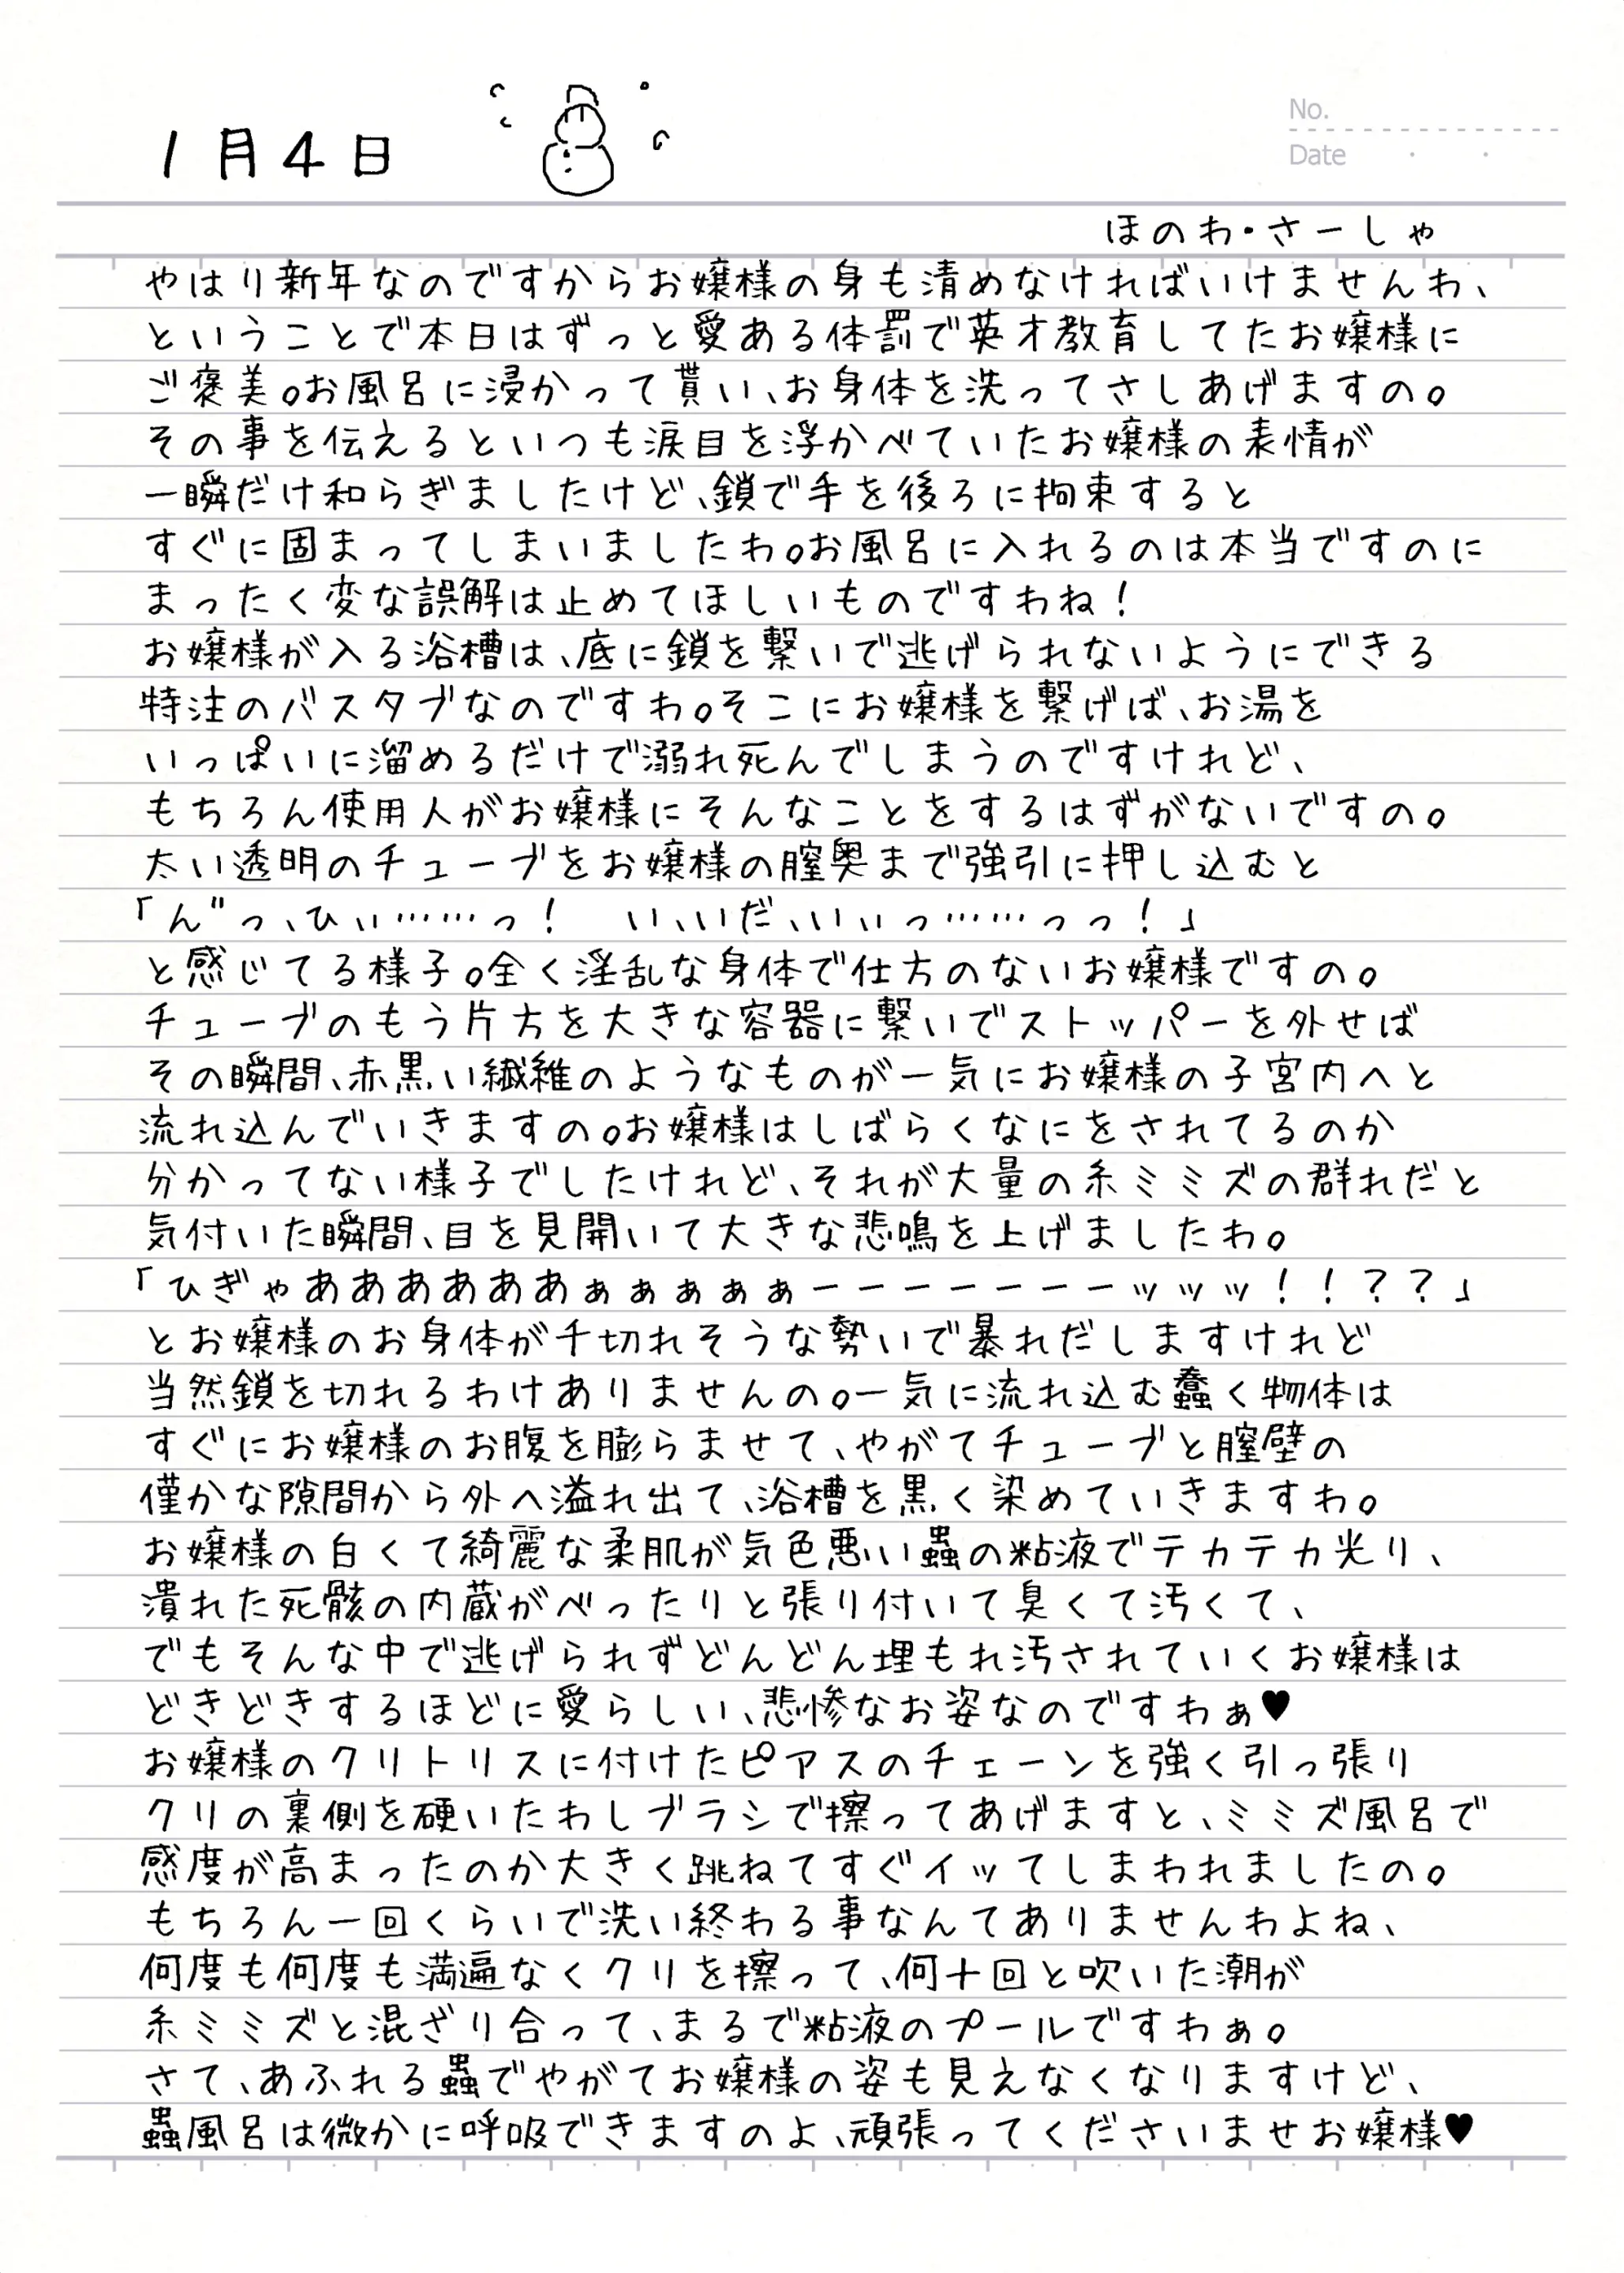 1月4日
No.
Date
ほのわ・さーしゃ
やはり新年なのですからお嬢様の身も清めなければいけませんわ、
ということで本日はずっと愛ある体罰で英才教育してたお嬢様に
ご褒美。お風呂に浸かって貰い、お身体を洗ってさしあげますの。
その事を伝えるといつも涙目を浮かべていたお嬢様の表情が
一瞬だけ和らぎましたけど、鎖で手を後ろに拘束すると
すぐに固まってしまいましたわ。お風呂に入れるのは本当ですのに
まったく変な誤解は止めてほしいものですわね！
お嬢様が入る浴槽は、底に鎖を繋いで逃げられないようにできる
特注のバスタブなのですわ。そこにお嬢様を繋げば、お湯を
いっぱいに溜めるだけで溺れ死んでしまうのですけれど、
もちろん使用人がお嬢様にそんなことをするはずがないですの。
太い透明のチューブをお嬢様の膣奥まで強引に押し込むと
「ん"っ、ひぃ……っ！　い、いだ、いぃっ……っっ！」
と感じてる様子。全く淫乱な身体で仕方のないお嬢様ですの。
チューブのもう片方を大きな容器に繋いでストッパーを外せば
その瞬間、赤黒い繊維のようなものが一気にお嬢様の子宮内へと
流れ込んでいきますの。お嬢様はしばらくなにをされてるのか
分かってない様子でしたけれど、それが大量の糸ミミズの群れだと
気付いた瞬間、目を見開いて大きな悲鳴を上げましたわ。
「ひぎゃああああああぁぁぁぁぁーーーーーーーッッッ！！？？」
とお嬢様のお身体が千切れそうな勢いで暴れだしますけれど
当然鎖を切れるわけありませんの。一気に流れ込む蠢く物体は
すぐにお嬢様のお腹を膨らませて、やがてチューブと膣壁の
僅かな隙間から外へ溢れ出て、浴槽を黒く染めていきますわ。
お嬢様の白くて綺麗な柔肌が気色悪い蟲の粘液でテカテカ光り、
潰れた死骸の内蔵がべったりと張り付いて臭くて汚くて、
でもそんな中で逃げられずどんどん埋もれ汚されていくお嬢様は
どきどきするほどに愛らしい、悲惨なお姿なのですわぁ♥
お嬢様のクリトリスに付けたピアスのチェーンを強く引っ張り
クリの裏側を硬いたわしブラシで擦ってあげますと、ミミズ風呂で
感度が高まったのか大きく跳ねてすぐイッてしまわれましたの。
もちろん一回くらいで洗い終わる事なんてありませんわよね、
何度も何度も満遍なくクリを擦って、何十回と吹いた潮が
糸ミミズと混ざり合って、まるで粘液のプールですわぁ。
さて、あふれる蟲でやがてお嬢様の姿も見えなくなりますけど、
蟲風呂は微かに呼吸できますのよ、頑張ってくださいませお嬢様♥